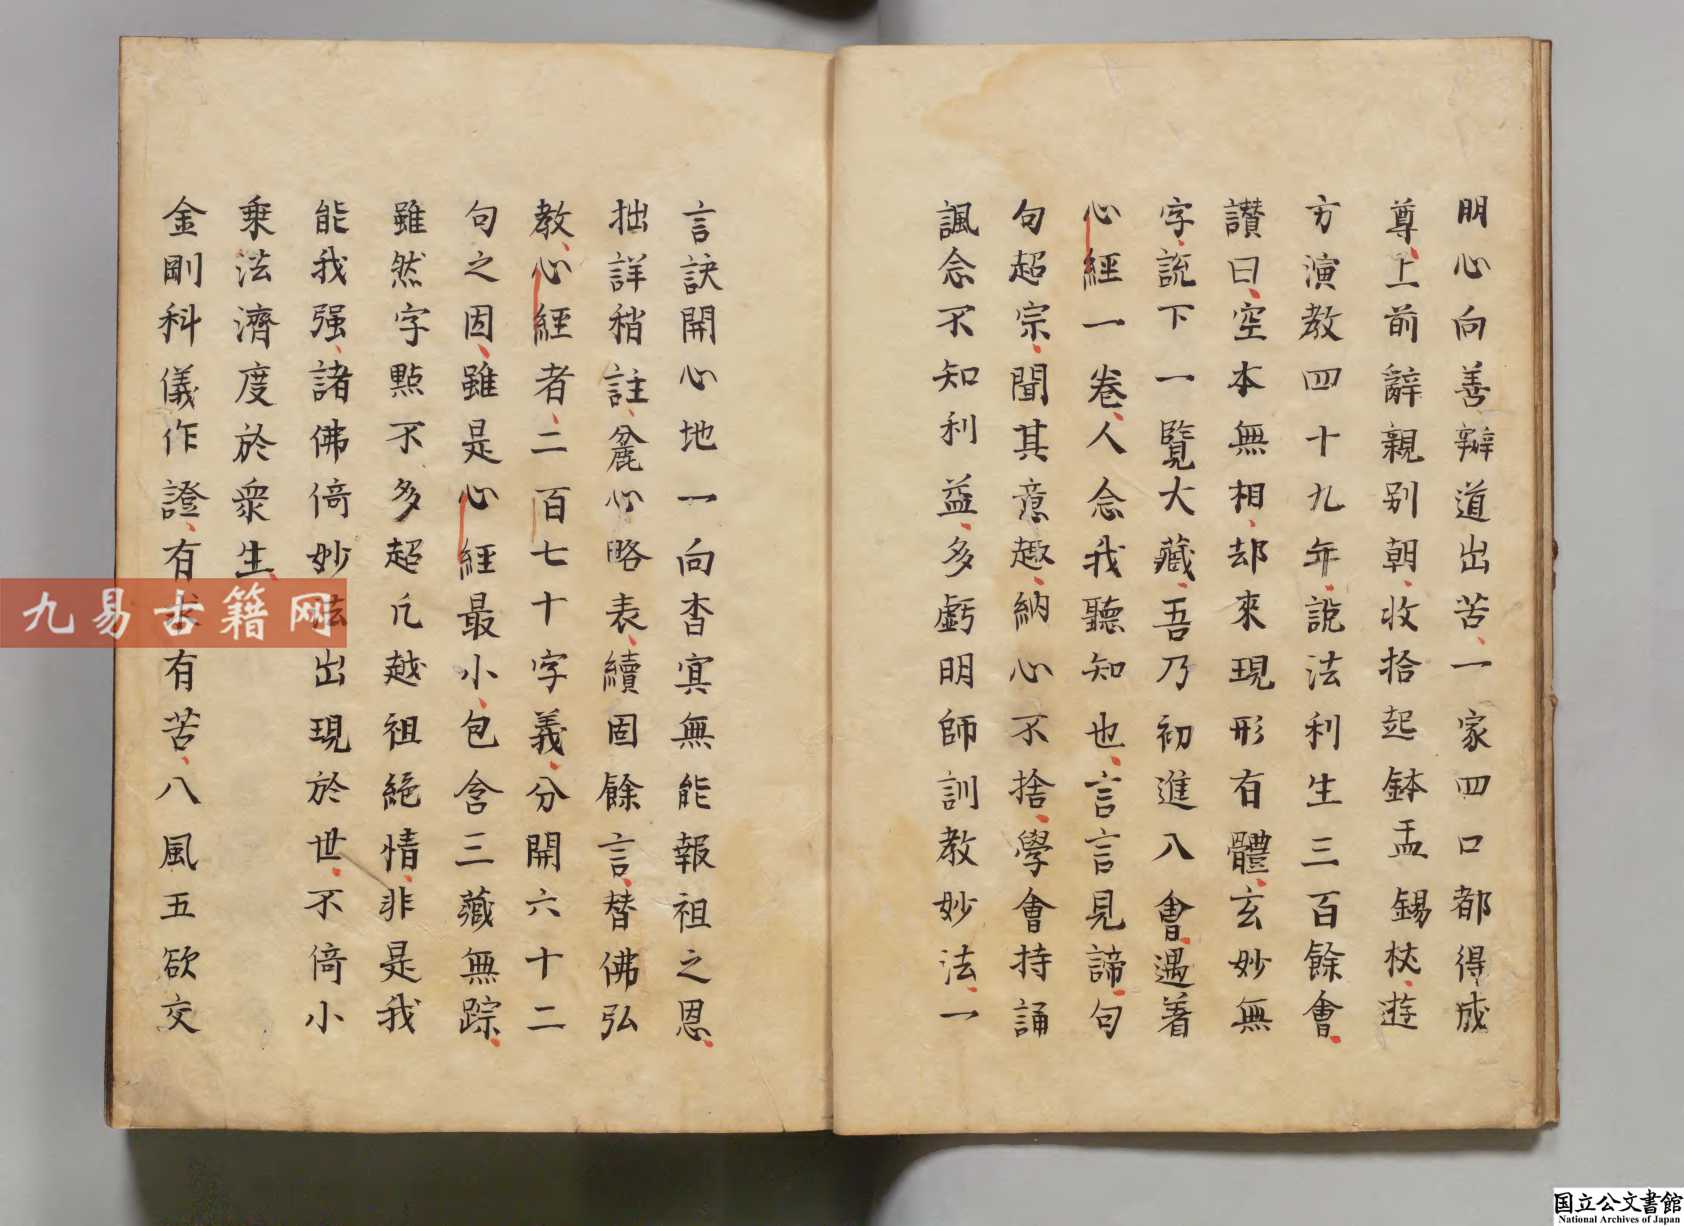 明心向善辯道出苦一家四口都得成
尊上前辭親別朝收拾起鉢盂錫杖遊
方演教四十九年說法利生三百餘會
讃曰空本無相却來現形有體玄妙無
字說下一覽大藏吾乃初進八會遇着
心經一卷人念我聽知也言言見諦句
句超宗聞其意趣納心不捨學會持誦
諷念不知利益多虧明師訓教妙法一
言訣開心地一向杳冥無能報祖之恩
拙詳稍註麄心略表續固餘言替佛弘
教心經者二百七十字義分開六十二
句之因雖是心經最小包含三藏無踪
雖然字點不多超凢越祖絕情非是我
能我强諸佛倚妙法出現於世不倚小
乗法濟度於衆生
金剛科儀作證有有苦八風五欲交
九易古籍网
国立公文書館
National Archives of Japan